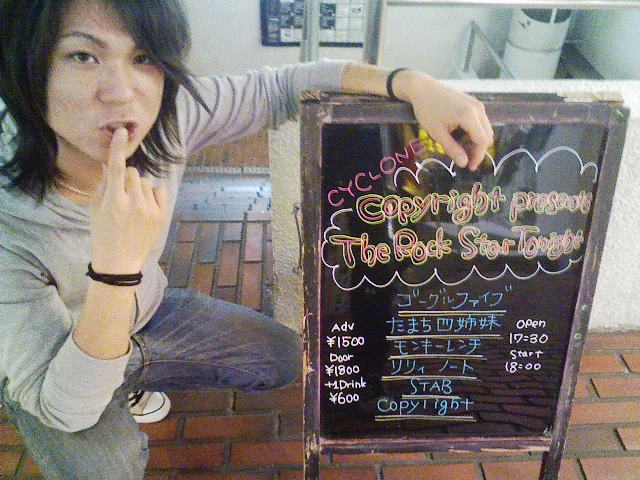 CYCLONE
Copyright presents
The Rock Star Tonight
ゴーグルファイブ
たまち四姉妹
モンキーレンチ
リリィ ノート
STAB
Copyright
Adv
¥1500
Door
¥1800
+1Drink
¥600
open
17=30
Start
18=00